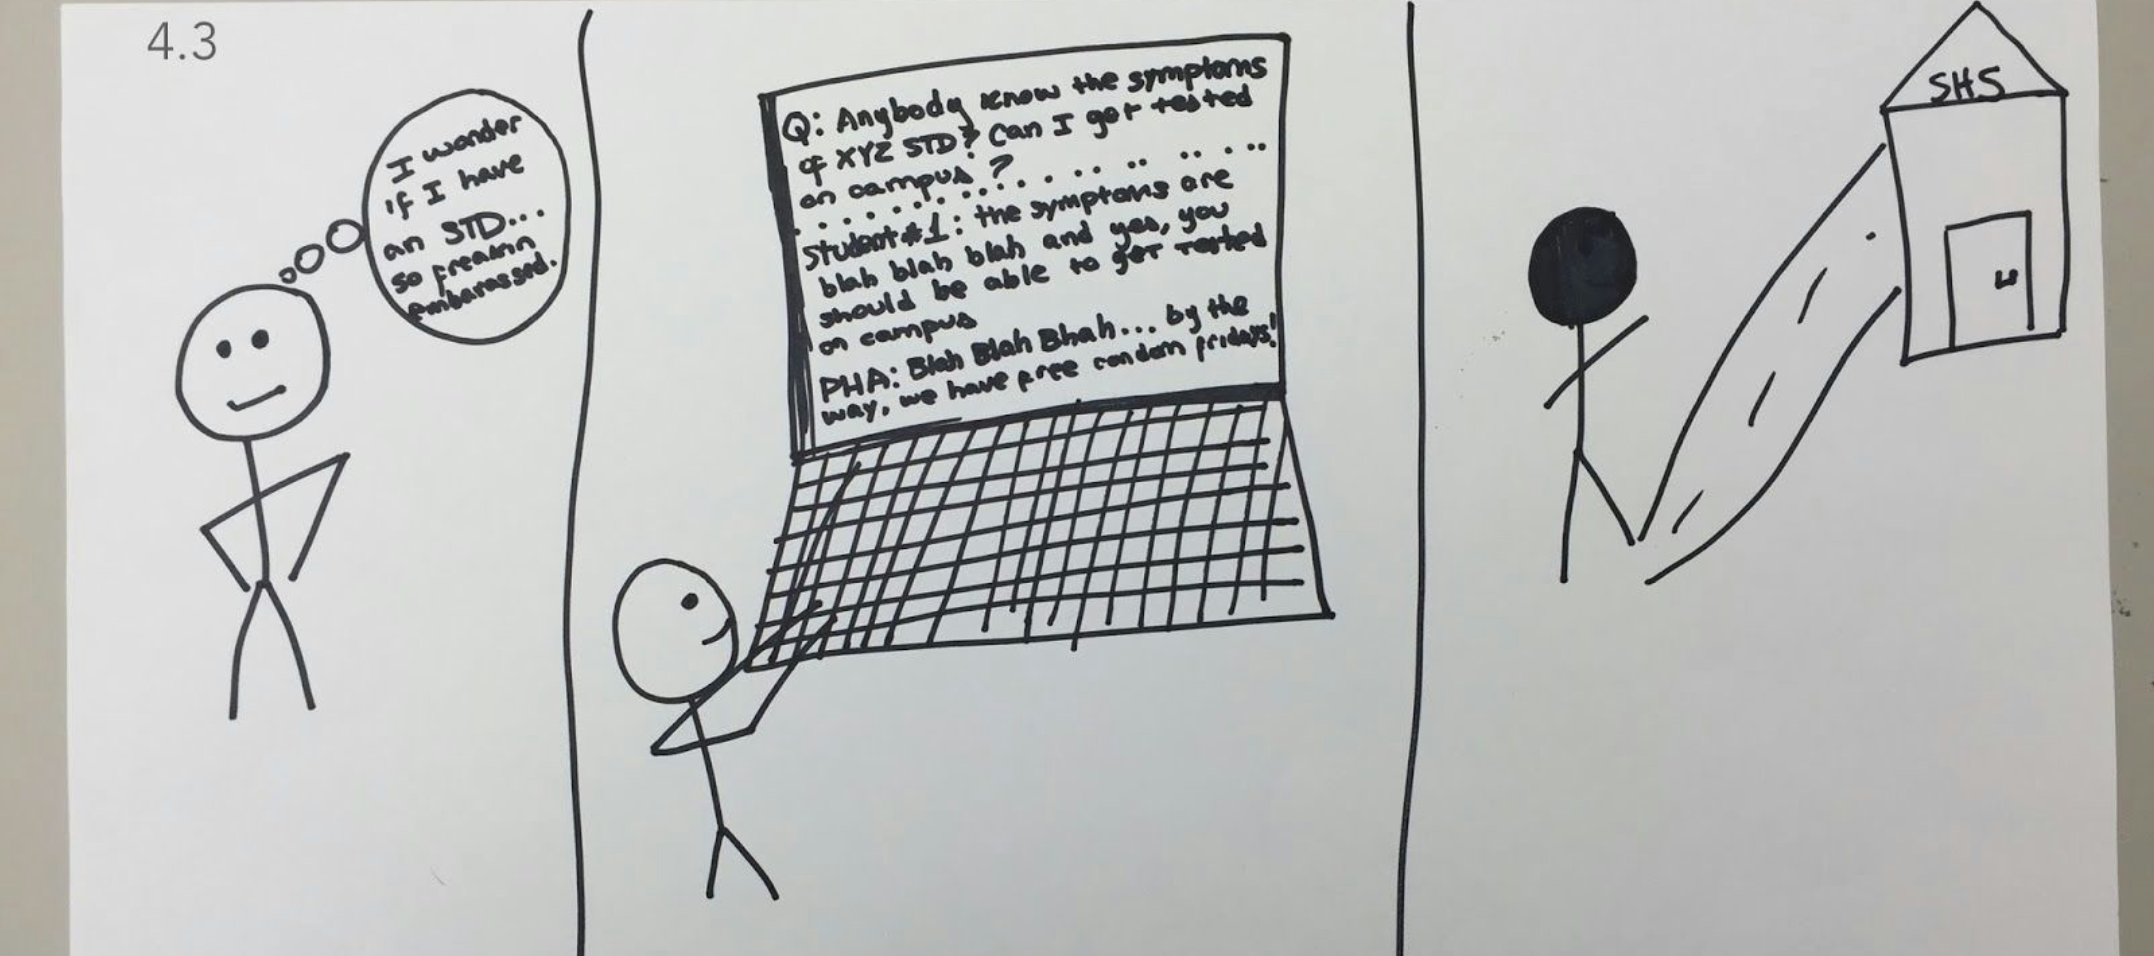 4.3
I wonder
if I have
an STD...
so freakin
embarassed.
Q: Anybody know the symptoms
of XYZ STD? Can I get tested
on campus?
Student #1: the symptoms are
blah blah blah and yes, you
should be able to get tested
on campus
PHA: Blah Blah Bhah... by the
way, we have free condom fridays!
SHS